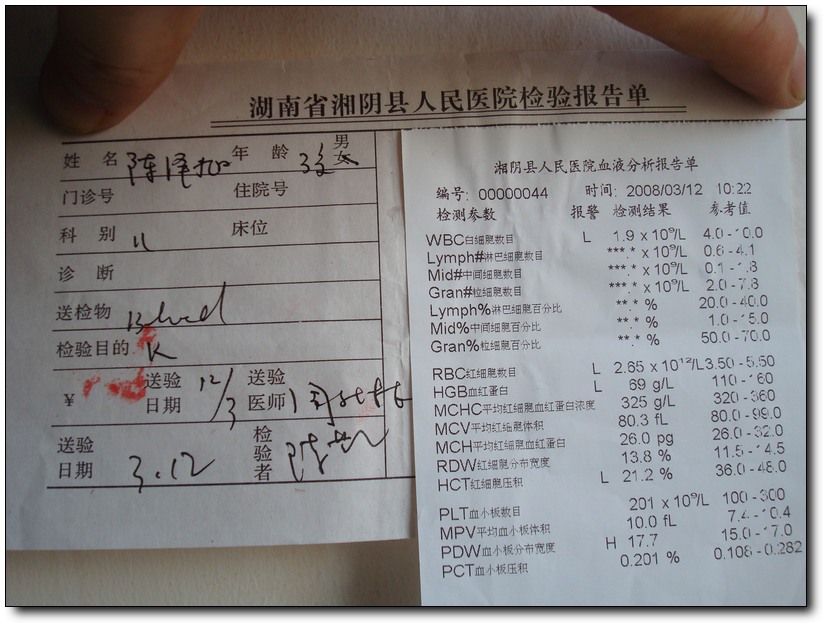 湖南省湘阴县人民医院检验报告单
姓 名 陈泽 年 龄 3岁 男 女
门诊号 住院号
科 别 床位
诊 断
送检物 Blood
检验目的 K
¥ 送验日期 12/3 送验医师
送验日期 3.12 检验者 陈
湘阴县人民医院血液分析报告单
编号: 00000044 时间: 2008/03/12 10:22
检测参数 报警 检测结果 参考值
WBC白细胞数目 L 1.9 x 10⁹/L 4.0 - 10.0
Lymph#淋巴细胞数目 ***.* x 10⁹/L 0.6 - 4.1
Mid#中间细胞数目 ***.* x 10⁹/L 0.1 - 1.8
Gran#粒细胞数目 ***.* x 10⁹/L 2.0 - 7.8
Lymph%淋巴细胞百分比 **.* % 20.0 - 40.0
Mid%中间细胞百分比 **.* % 1.0 - 15.0
Gran%粒细胞百分比 **.* % 50.0 - 70.0
RBC红细胞数目 L 2.65 x 10¹²/L 3.50 - 5.50
HGB血红蛋白 L 69 g/L 110 - 160
MCHC平均红细胞血红蛋白浓度 325 g/L 320 - 360
MCV平均红细胞体积 80.3 fL 80.0 - 99.0
MCH平均红细胞血红蛋白 26.0 pg 26.0 - 32.0
RDW红细胞分布宽度 13.8 % 11.5 - 14.5
HCT红细胞压积 L 21.2 % 36.0 - 48.0
PLT血小板数目 201 x 10⁹/L 100 - 300
MPV平均血小板体积 10.0 fL 7.4 - 10.4
PDW血小板分布宽度 H 17.7 15.0 - 17.0
PCT血小板压积 0.201 % 0.108 - 0.282